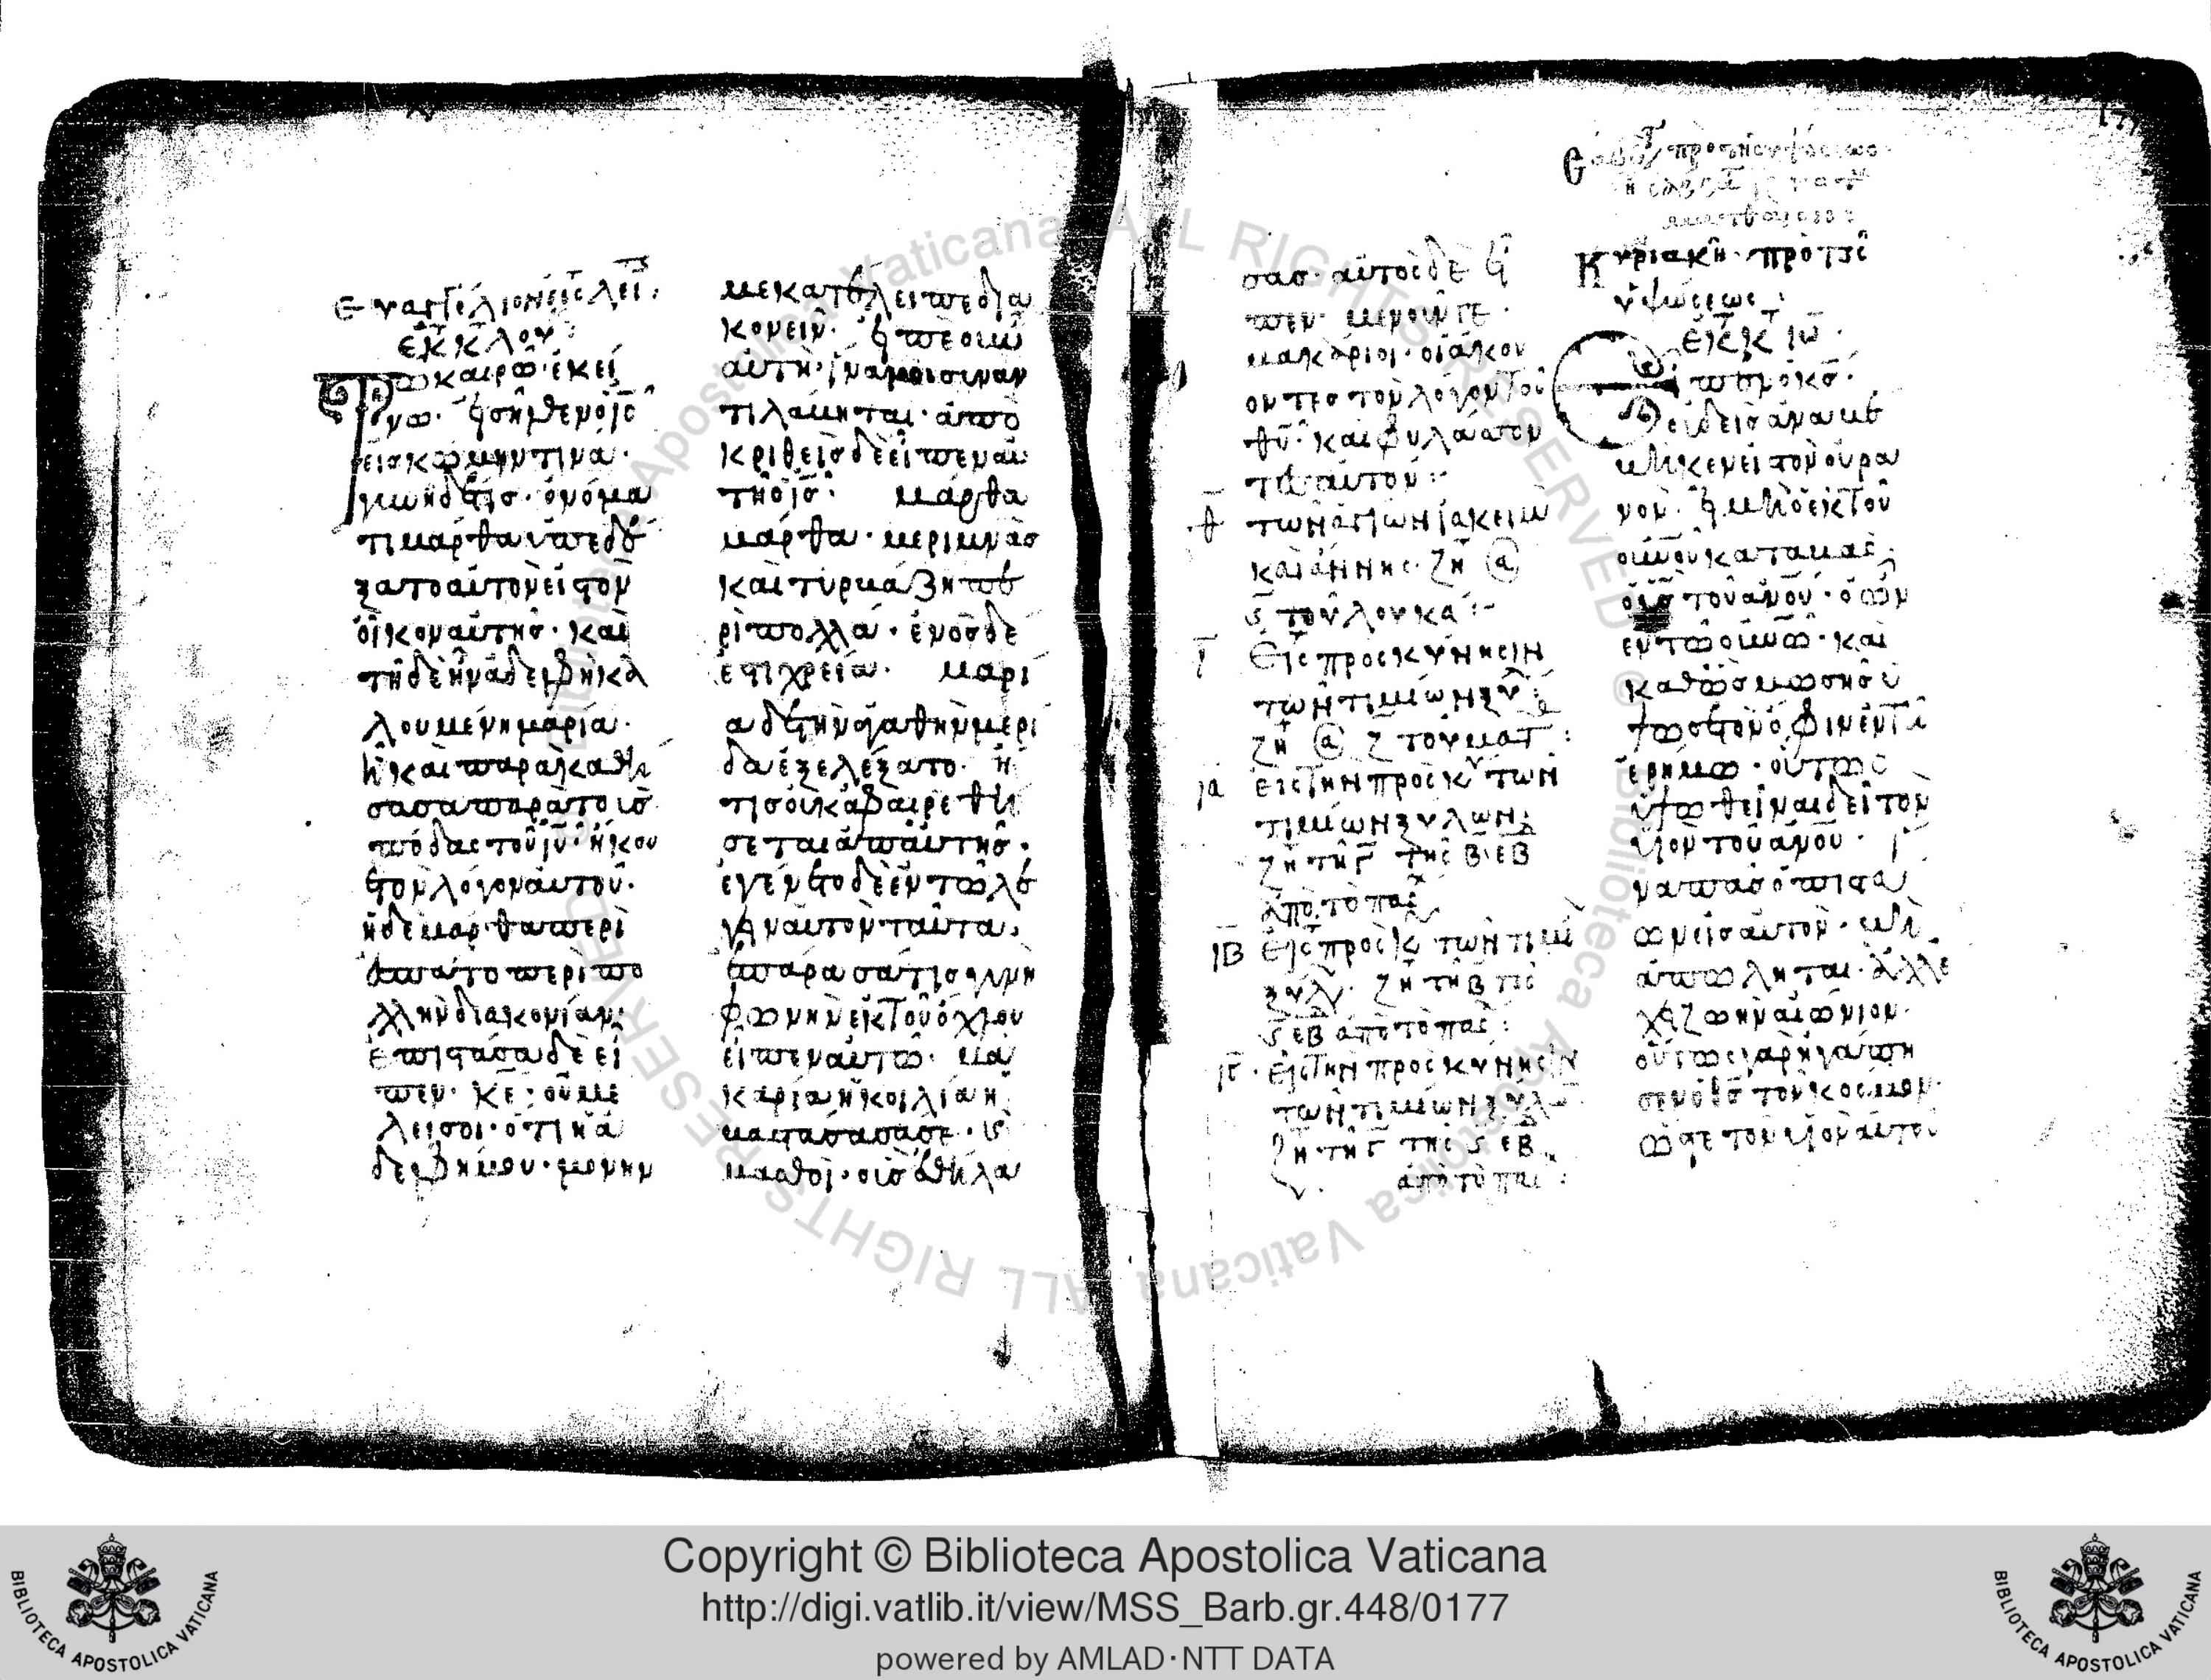 Εὐαγγέλιον εἰς τ λει
ἐκ κ λου
Τῶ καιρῶ ἐκεί
νω· ἐισῆλθεν ὁ ις
εις κώμην τινά·
γυνὴ δέ τις· ὀνόμα
τι μάρθα ὑπεδέ
ξατο αὐτὸν εἰς τὸν
ὅικον αὐτῆς· καὶ
τῆδε ἦν ἀδελφὴ κα
λουμένη μαρία·
ἣ καὶ παρακαθί
σασα παρὰ τοὺς
πόδας τοῦ ιυ· ἤκου
ε τὸν λόγον αὐτοῦ·
ἡ δὲ μάρθα περι
εσπᾶτο περὶ πο
λλὴν διακονίαν·
ἐπιστάσα δὲ εἶ
πεν· κε· οὐ μέ
λει σοι· ὅτι ἡ ἀ
δελφή μου· μόνην
με κατέλειπε δια
κονεῖν· εἰπὲ οὖν
αὐτῆ· ἵνα μοι συναν
τιλάμηται· ἀπο
κριθεὶς δὲ εἶπεν αὐ
τῆ ὁ ις· μάρθα
μάρθα· μεριμνᾶς
καὶ τυρμάβη πε
ρὶ πολλά· ἑνὸς δέ
ἐστι χρεία· μαρί
α δὲ τὴν ἀγαθὴν μερί
δα ἐξελέξατο· ἥ
τις οὐκ ἀφαιρεθή
σεται ἀπ' αὐτῆς·
ἐγένετο δὲ ἐν τῶ λέ
γειν αὐτὸν ταῦτα·
ἐπάρασά τις γυνὴ
φωνὴν ἐκ τοῦ ὄχλου
εἶπεν αὐτῶ· μα
καρία ἡ κοιλία ἡ
βαστάσασά σε· καὶ
μασθοὶ· οὓς ἐθήλα
σας· αὐτὸς δὲ εἶ
πεν· μενοῦνγε·
μακάριοι· οἱ ἀκού
οντες τὸν λόγον τοῦ
θυ· καὶ φυλάσσον
τες αὐτόν:
θ τῶν ἁγίων ἰακεὶμ
καὶ ἄννης· ζη α
ς τοῦ λουκᾶ:
ι Εἰς προσκύνησιν
τῶν τιμίων ξυ
ζη α ζ τοῦ ματ:
ια εἰς τὴν προσκυ τῶν
τιμίων ξύλων·
ζη τῆ γ τῆς β εβ
ἀπὸ τὸ πας
ιβ Εἰς προσκ τῶν τιμ
ξυλ· ζη τη β της
ς εβ ἀπὸ τὸ πας:
ιγ εἰς τὴν προσκύνησιν
τῶν τιμίων ξυλ
ζη τῆ γ τῆς ς εβ
ἀπὸ τὸ πας:
Κυριακῆ· πρὸ τῆς
ὑψώσεως:
ἐκ τ κ ιω·
Εἶπεν ὁ κς·
οὐδεὶς ἀναβέ
βηκεν εἰς τὸν οὐρα
νὸν· εἰ μὴ ὁ ἐκ τοῦ
οὐνοῦ καταβάς·
ὁ υς τοῦ ἀνου· ὁ ὢν
ἐν τῶ οὐνῶ· καὶ
καθὼς μωσῆς ὕ
ψωσε τὸν ὄφιν ἐν τῆ
ἐρήμω· οὕτως
ὑψωθεῖναι δεῖ τὸν
υἱὸν τοῦ ἀνου· ἵ
να πᾶς ὁ πιστεύ
ων εἰς αὐτὸν· μὴ
ἀπόληται· ἀλλ' ἔ
χει ζωὴν αἰώνιον·
οὕτως γὰρ ἠγάπη
σεν ὁ θς τὸν κόσμον·
ὥστε τὸν υἱὸν αὐτοῦ
Copyright © Biblioteca Apostolica Vaticana
http://digi.vatlib.it/view/MSS_Barb.gr.448/0177
powered by AMLAD·NTT DATA
BIBLIOTECA APOSTOLICA VATICANA
BIBLIOTECA APOSTOLICA VATICANA